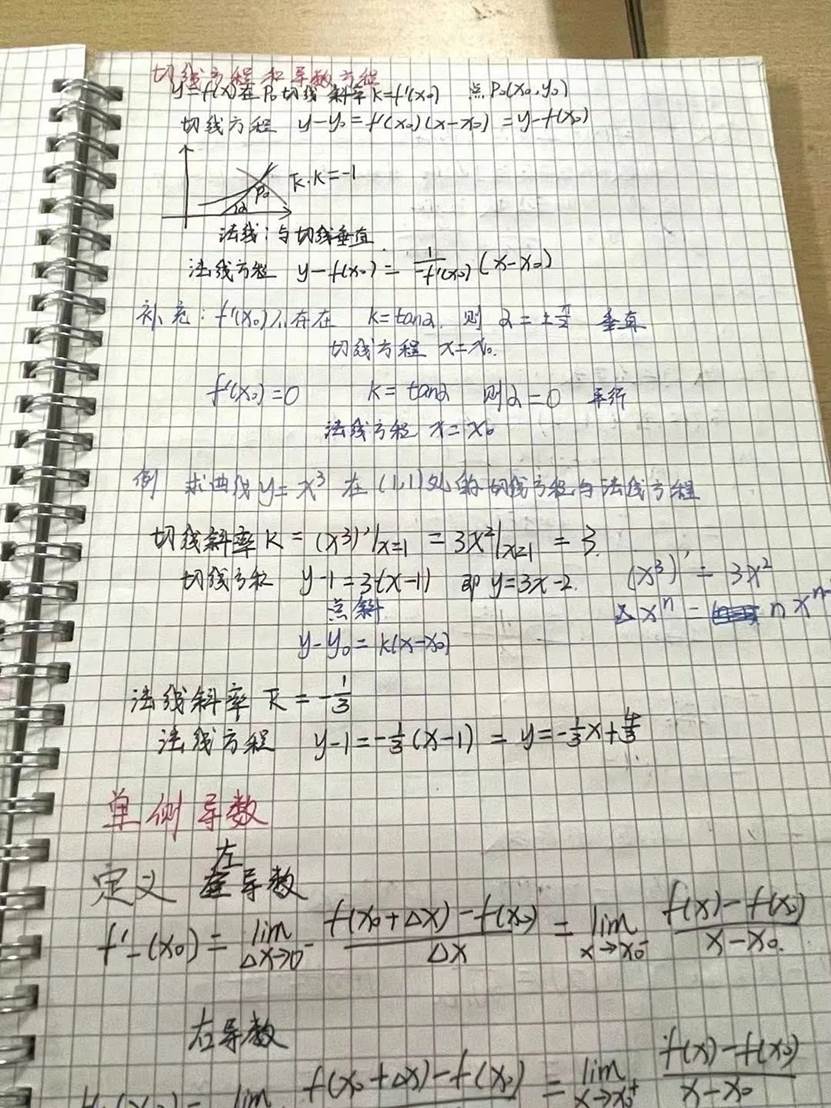 切线方程和导数方程
y=f(x)在P₀切线 斜率k=f'(x₀) 点P₀(x₀,y₀)
切线方程 y-y₀=f'(x₀)(x-x₀) =y-f(x₀)
k̄·k=-1
P₀
α
法线:与切线垂直
法线方程 y-f(x₀)= 1/-f'(x₀) (x-x₀)
补充:f'(x₀)不存在 k=tanα 则 α=±π/2 垂直
切线方程 x=x₀.
f'(x₀)=0 k= tanα 则α=0 平行
法线方程 x=x₀
例 求曲线y=x³ 在(1,1)处的切线方程与法线方程
切线斜率K=(x³)'|x=1 =3x²|x=1 =3.
切线方程 y-1=3(x-1) 即y=3x-2. (x³)'=3x²
点斜 xⁿ= n xⁿ⁻
y-y₀=k(x-x₀)
法线斜率 k̄=-1/3
法线方程 y-1=-1/3(x-1) = y=-1/3x+4/3
单侧导数
定义 左导数
f'-(x₀)= lim Δx→0⁻ f(x₀+Δx)-f(x₀)/Δx = lim x→x₀⁻ f(x)-f(x₀)/x-x₀.
右导数
lim f(x₀+Δx)-f(x₀) = lim x→x₀⁺ f(x)-f(x₀)/x-x₀